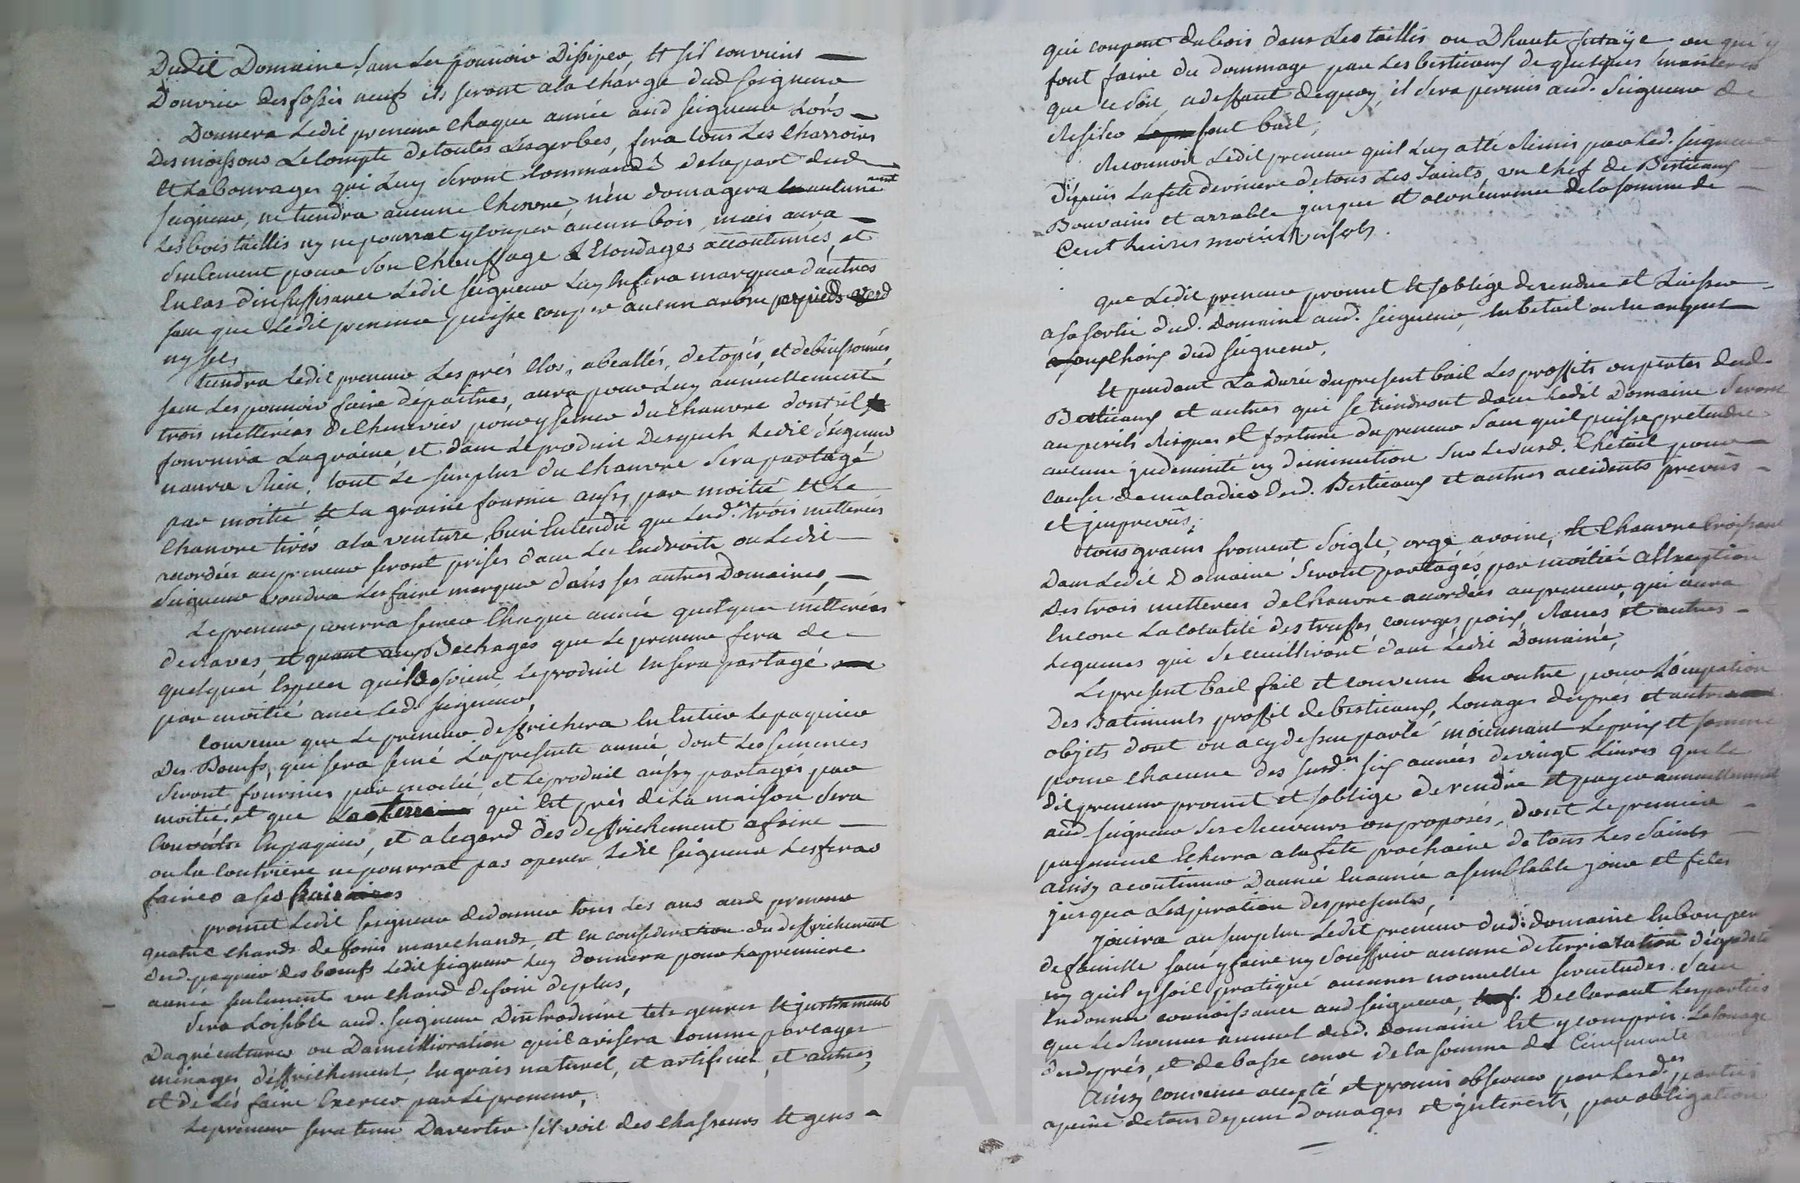 Dudit Domaine sans les pouvoir Dissiper, et s'il convient
Douvrir des fossés neufs ils seront a la charge dud seigneur
Donnera Ledit preneur chaque année aud seigneur Lors
Des moissons Le compte de toutes Les gerbes, fera tous Les charrois
et Labourages qui Luy seront commandé de la part dud
seigneur, ne tiendra aucune chevre, n'en domagera aucunement
Les bois taillis ny ne pourrat y couper aucun bois, mais aura
seulement pour son chauffage Les Elondages accoutumés, et
En cas d'insuffisance Ledit seigneur Luy En fera marquer d'autres
sans que Ledit preneur puisse couper aucun arbre par pieds verd
ny sec,
tiendra Ledit preneur Les prés clos, détopés, et debuissonnés
sans Les pouvoir faire depaitres, aura pour Luy annuellement
trois metterées de chenevier pour y semer du chanvre dont il
fournira La graine et dans Le produit Desquels Ledit seigneur
n'aura Rien, tout Le surplus du chanvre sera partagé
par moitié et La graine fournie aussy par moitié et Le
chanvre tiré a la venture, bien Entendu que Lesd. trois metterées
acordées au preneur seront prises dans Les Endroits ou Ledit
seigneur voudra Les faire marquer dans ses autres Domaines,
Le preneur pourra semer chaque année quelques metterées
de Raves et quant aux Bechages que Le preneur fera de
quelques Especes qu'ils soient, Le produit En sera partagé
par moitié avec Led. seigneur,
convenu que Le preneur deffrichera En Entier Le paquier
Des Boeufs, qui sera semé La presente année dont Les semences
seront fournies par moitié, et Le produit aussy partagés par
moitié, et que qui Est près de La maison sera
En paquier, et a l'egard des deffrichement a faire
ou La coutriere ne pourrat pas operer Ledit seigneur Les feras
faires a ses frais
promet Ledit seigneur de donner tous Les ans aud preneur
quatre chards de foins marchands, et en consideration du deffrichement
dud paquier des boeufs Ledit seigneur Luy donnera pour La premiere
année seulement un chard de foin de plus,
sera Loisible aud. seigneur D'introduire tels genres et instrument
D'agriculture ou D'amelliioration qu'il avisera comme partages
menages, deffrichement, Engrais naturel, et artificiel, et autres,
et de Les faire Exercer par Le preneur,
Le preneur sera tenu D'avertir s'il voit des chasseurs et gens
qui coupent du bois dans Les taillis ou D haute futaye ou qui y
font faire du dommage par Les bestieaux de quelques manieres
que ce soit, a deffaut de quoy, il sera permis aud. seigneur de
Resilier tout bail,
Reconnoit Ledit preneur qu'il Luy a été Remis par Led. seigneur
Depuis La fete derniere de tous Les saints, un chef de Bestieaux
Bouvains et arrable jusque et a concurrence de la somme de
Cent
que Ledit preneur promet et s'oblige de rendre et Laisser
a sa sortie dud. Domaine aud. seigneur, En betail ou En argent
choix dud seigneur,
et pendant La durée du present bail Les proffits ou pertes desd.
Bestieaux et autres qui se tiendront dans Ledit Domaine seront
au perils Risques et fortune du preneur sans qu'il puisse pretendre
aucune indemnité ny diminution sur Le susd. chetail pour
causes de maladies desd. Bestieaux et autres accidents prevus
et imprevus,
tous grains froment seigle, orge avoine, et chanvre croissant
Dans Ledit Domaine seront partagés par moitié a l'Exception
Des trois metterées de chanvre acordées au preneur, qui aura
Encore La totalité des truffes courges pois, Raves et autres
Legumes qui se cuilleront dans Ledit Domaine,
Le present bail fait et convenu En outre pour L'occupation
Des Batiments proffit de bestieaux, Louages de prés et autres
objets dont on a cy dessus parlé moiennant Le prix et somme
pour chacune des susd. six années de vingt Livres que Le
dit preneur promet et s'oblige de rendre et payer annuellement
aud. seigneur ses Receveurs ou proposés, dont Le premier
payement Echerra a La fete prochaine de tous Les saints
ainsy a continuer D'année En année a semblable jour et fetes
jusqu'a L'Expiration des presentes,
jouira au surplus Ledit preneur dud. domaine En bon pere
de famille sans y faire ny souffrir aucune deterrioration degradation
ny qu'il y soit pratiqué aucunes nouvelles servitudes. sans
En donner connoissance aud seigneur, Declarant Les parties
que Le Revenu annuel dud. domaine Est y compris Le Louage
des prés, et de basse cour de la somme de Cinquante
Ainsy convenu accepté et promis observer par Lesd. parties
a peine de tous depens domages et interets, par obligation